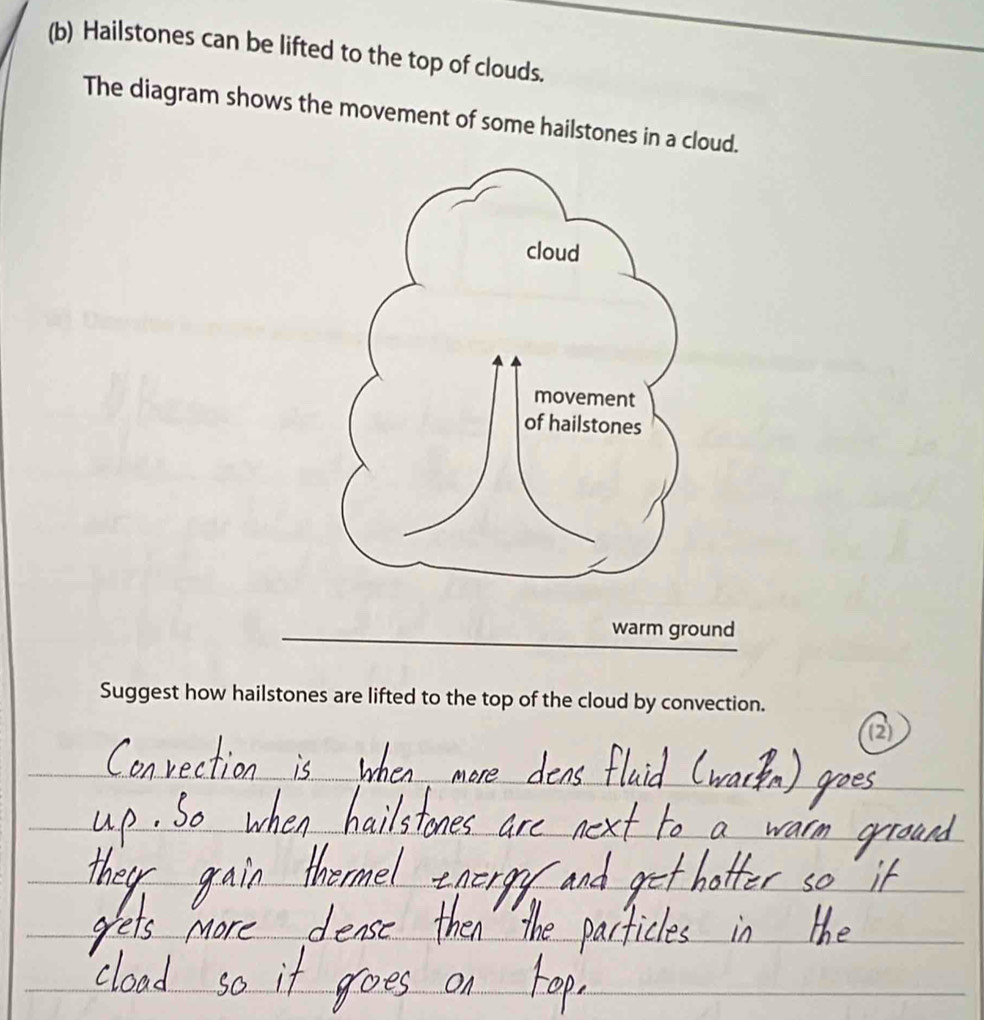 (b) Hailstones can be lifted to the top of clouds.
The diagram shows the movement of some hailstones in a cloud.
cloud
movement
of hailstones
warm ground
Suggest how hailstones are lifted to the top of the cloud by convection.
(2)
Convection is when more dens fluid () goes
up. So when hailstones are next to a warm ground
they gain thermel energy and get hotter so it
gets more dense then the particles in the
cload so it goes on top.